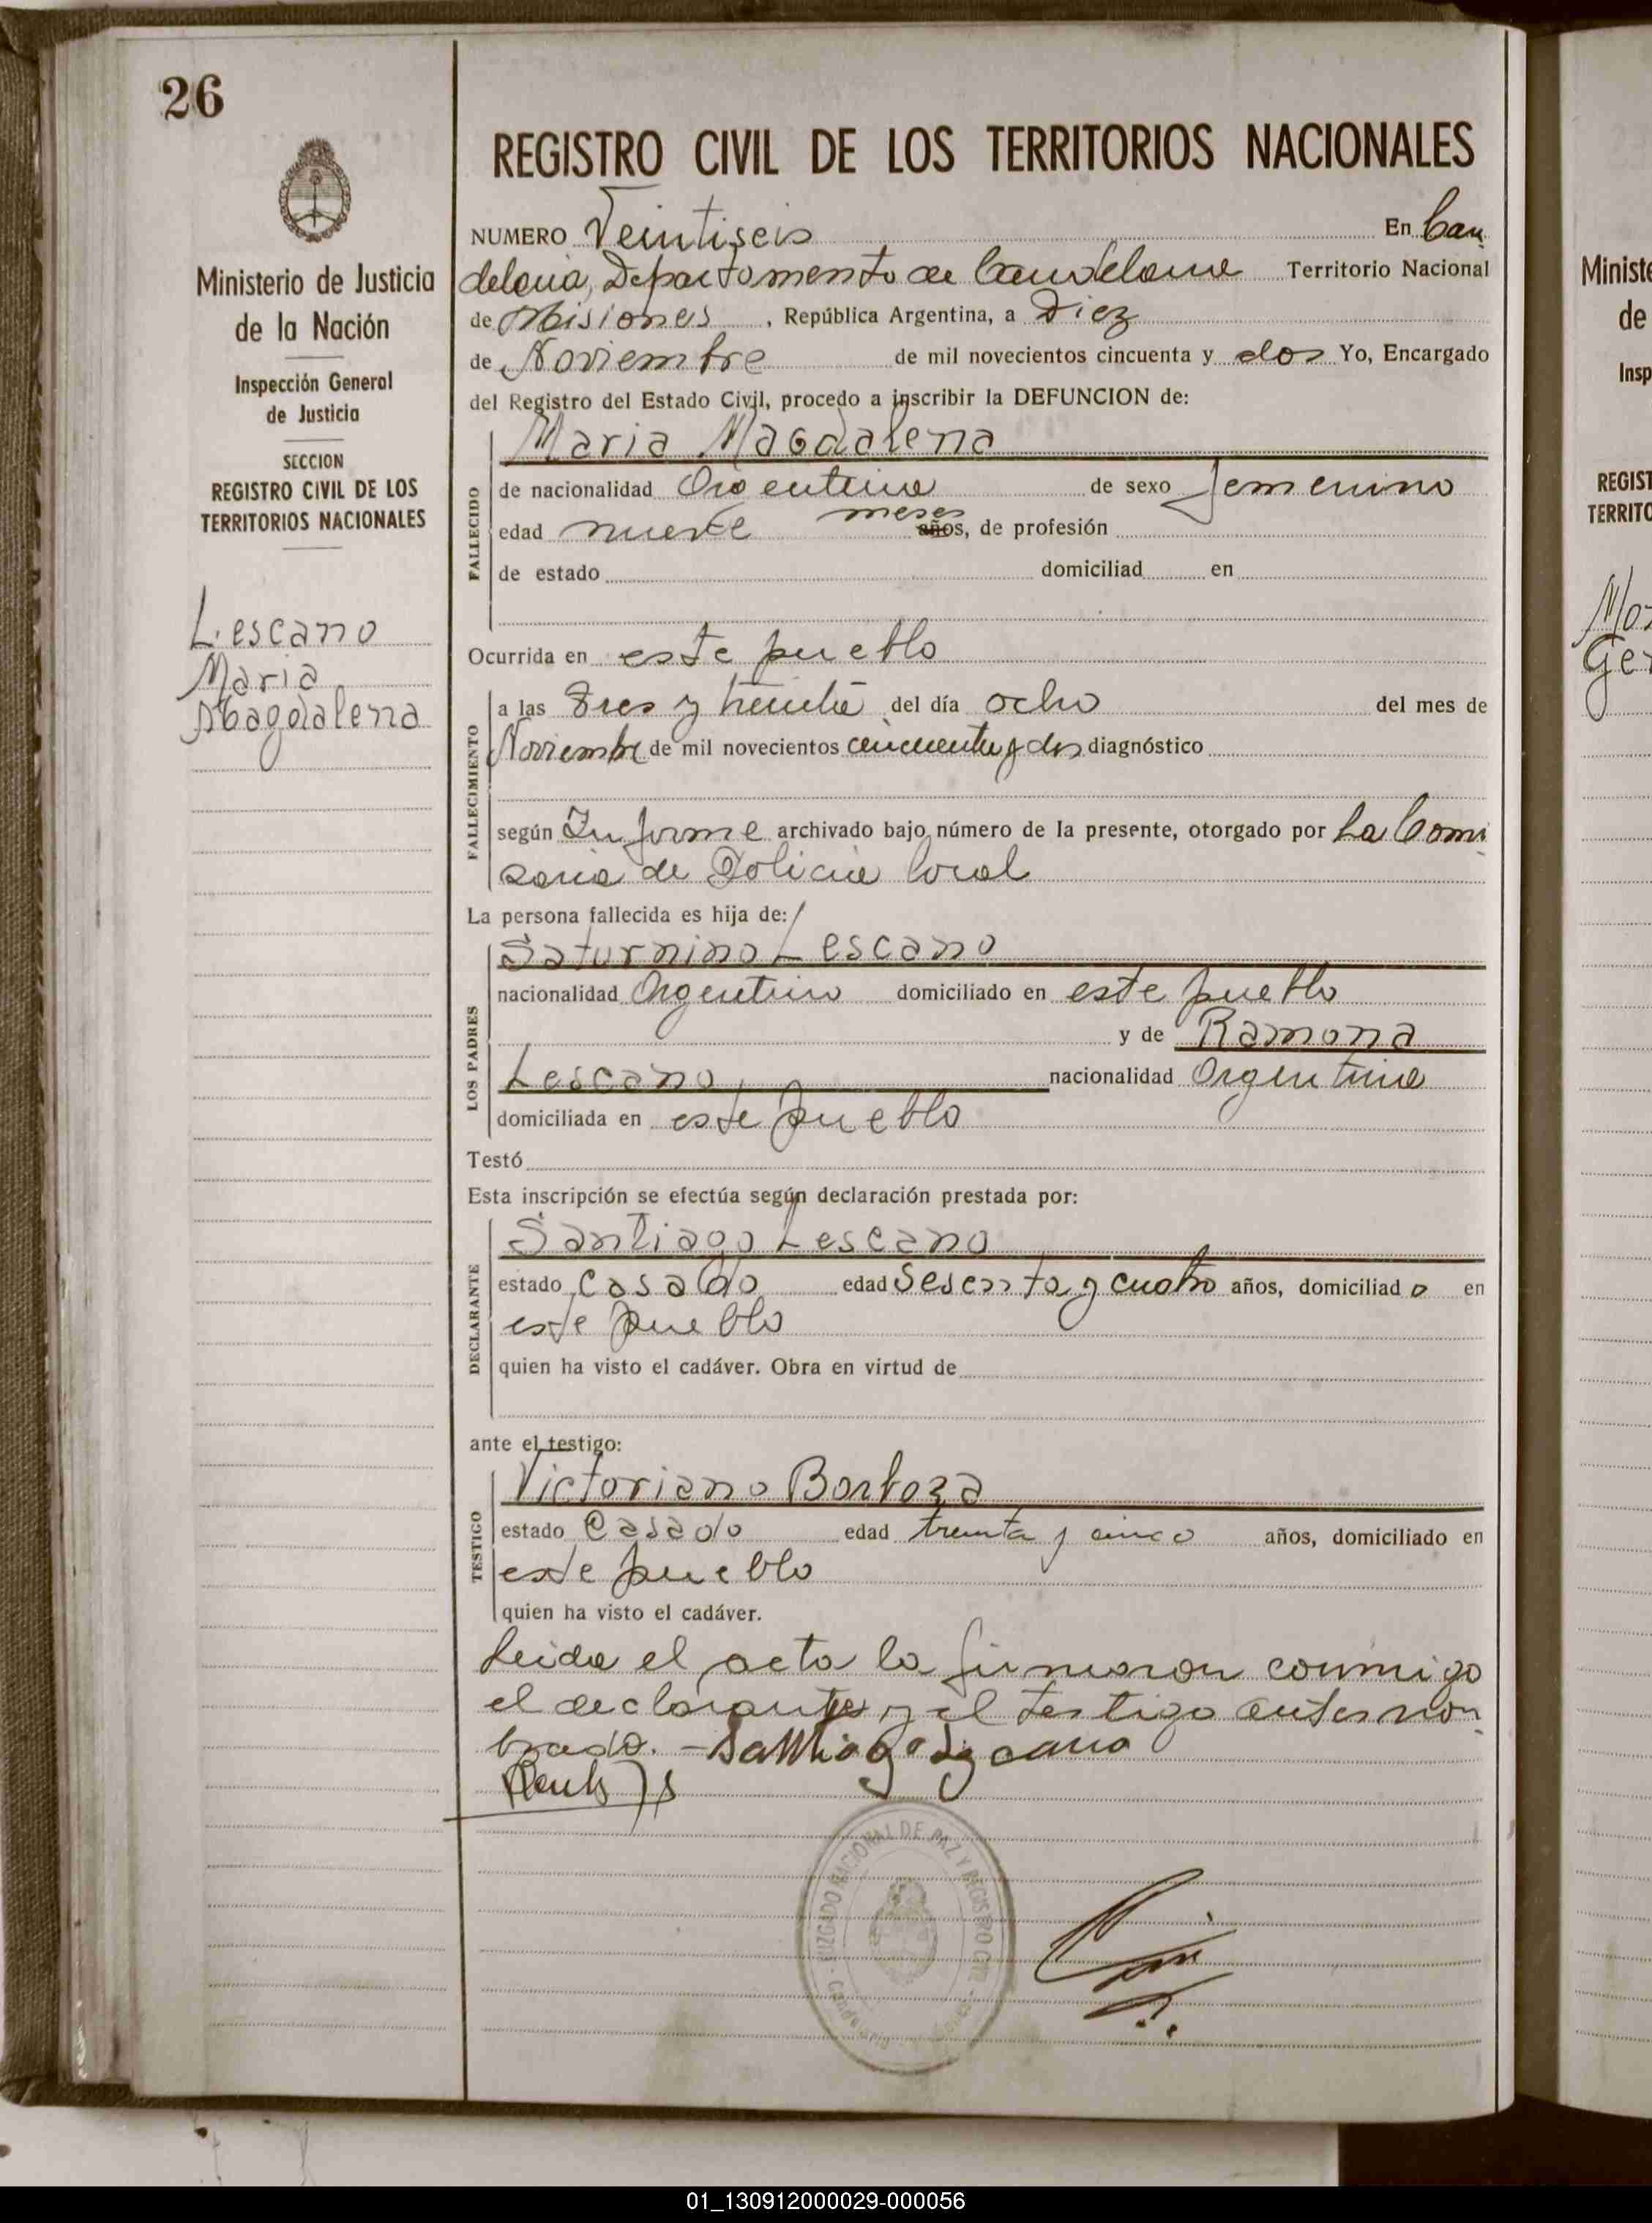 26
Ministerio de Justicia
de la Nación
Inspección General
de Justicia
SECCION
REGISTRO CIVIL DE LOS
TERRITORIOS NACIONALES
Lescano
Maria
Magdalena
REGISTRO CIVIL DE LOS TERRITORIOS NACIONALES
NUMERO Veintiseis En Can
delaria, Departamento de Candelaria Territorio Nacional
de Misiones, República Argentina, a Diez
de Noviembre de mil novecientos cincuenta y dos Yo, Encargado
del Registro del Estado Civil, procedo a inscribir la DEFUNCION de:
Maria Magdalena
FALLECIDO
de nacionalidad Argentina de sexo Femenino
meses
edad nueve años, de profesión
de estado domiciliad en
Ocurrida en este pueblo
FALLECIMIENTO
a las Tres y treinta del día ocho del mes de
Noviembre de mil novecientos cincuenta y dos diagnóstico
según Informe archivado bajo número de la presente, otorgado por La Comi
saria de Policia local
La persona fallecida es hija de:
LOS PADRES
Saturnino Lescano
nacionalidad Argentino domiciliado en este pueblo
y de Ramona
Lescano, nacionalidad Argentina
domiciliada en este pueblo
Testó
Esta inscripción se efectúa según declaración prestada por:
DECLARANTE
Santiago Lescano
estado Casado edad Sesenta y cuatro años, domiciliad o en
este pueblo
quien ha visto el cadáver. Obra en virtud de
ante el testigo:
TESTIGO
Victoriano Borboza
estado Casado edad treinta y cinco años, domiciliado en
este pueblo
quien ha visto el cadáver.
Leida el acta la firmaron conmigo
el declarante y el testigo antes nom
brado. - Santiago Lescano
JUZGADO NACIONAL DE PAZ Y REGISTRO CIVIL
Candelaria
Ministe
de
Insp
REGIST
TERRITO
01_130912000029-000056